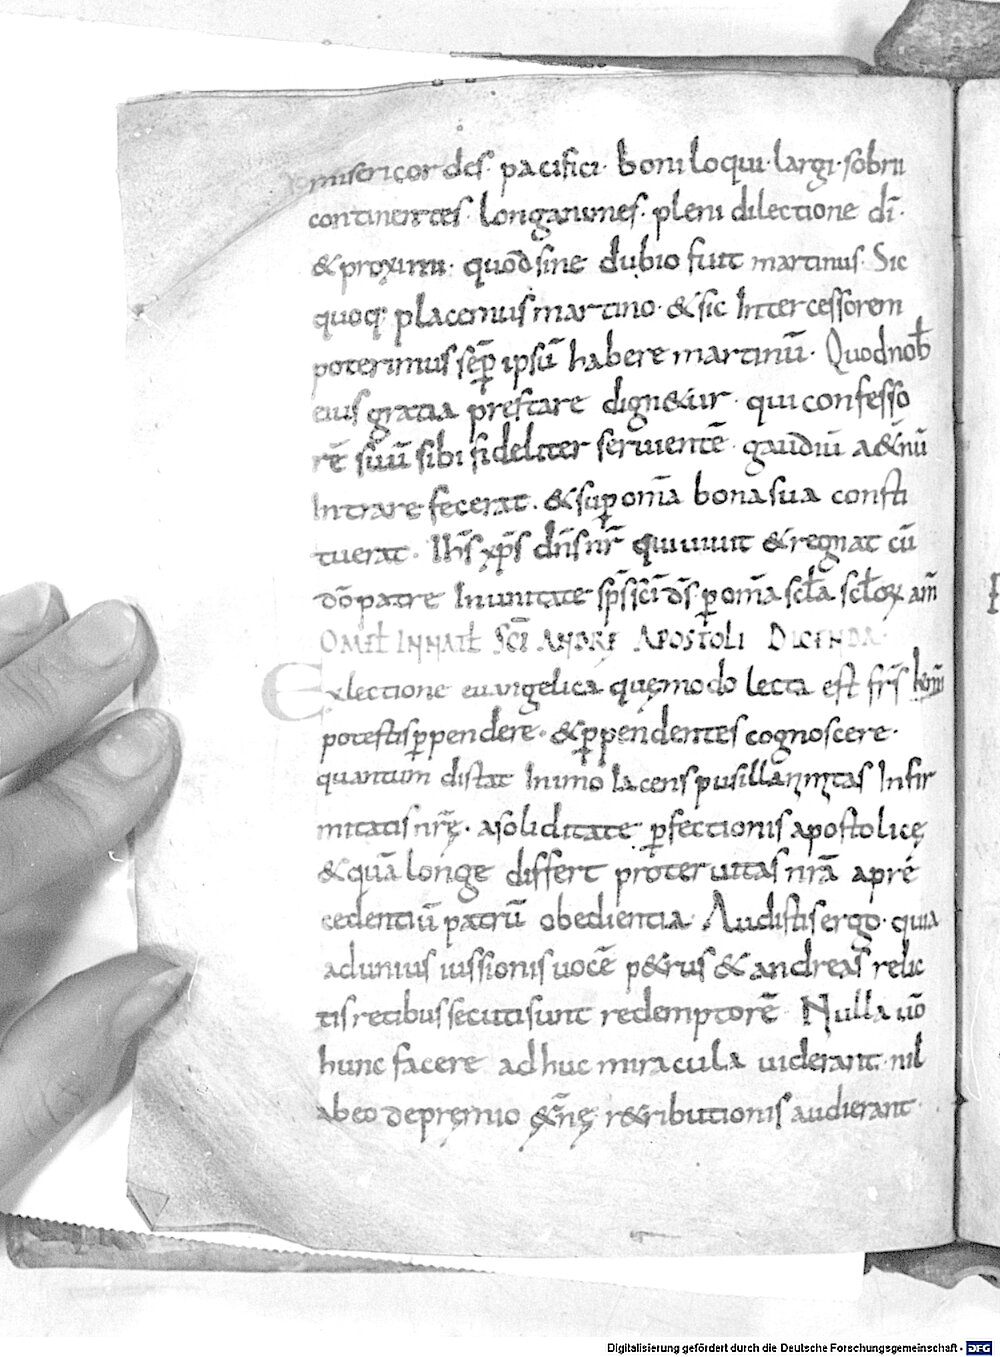 misericordes· pacifici· boni loqui· largi· sobrii
continentes· longanimes· pleni dilectione dī·
&proximi· quod̄ sine dubio fuit martinus· Sic
quoq; placemus martino· &sic Intercessorem
poterimus sēp̲ ipsū habere martinū· Quod nob̄
eius gratia prestare dign&ur· qui confesso
rē suū sibi fideliter seruientē gaudiū a&nū
Intrare fecerat· &sup̲ om̄a bona sua consti
tuerat· Ih̄s xp̄s dn̄s nr̄ qui uiuit ®nat cū
dō patre In unitate sp̄s sc̄i d̄s· p̲ om̄a scł̄a scł̄orꝝ am̄
OMEŁ IN NAT̄Ł SC̄I ANDRĘ APOSTOLI DICENDA·
Ex lectione euangelica quęmodo lecta est fr̄s kmi̅
potestis p̲pendere· &p̲pendentes cognoscere·
quantum distat In imo iacens pusillanimitas Infir
mitatis nr̄ę· a soliditate p̲fectionis apostolicę
&quā longe differt proteruitas nr̄ā a prę
cedentiū patrū obedientia· Audistis ergo· quia
ad unius iussionis uocē p&rus &andreas relic
tis retibus secuti sunt redemptorē Nulla uō
hunc facere adhuc miracula uiderant· nil
ab eo de pręmio &n̄ę r&ributionis audierant·
Digitalisierung gefördert durch die Deutsche Forschungsgemeinschaft - DFG